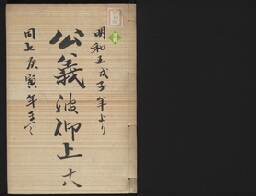 明和五戊子年より
公義被仰上 十八
同七庚寅年まて